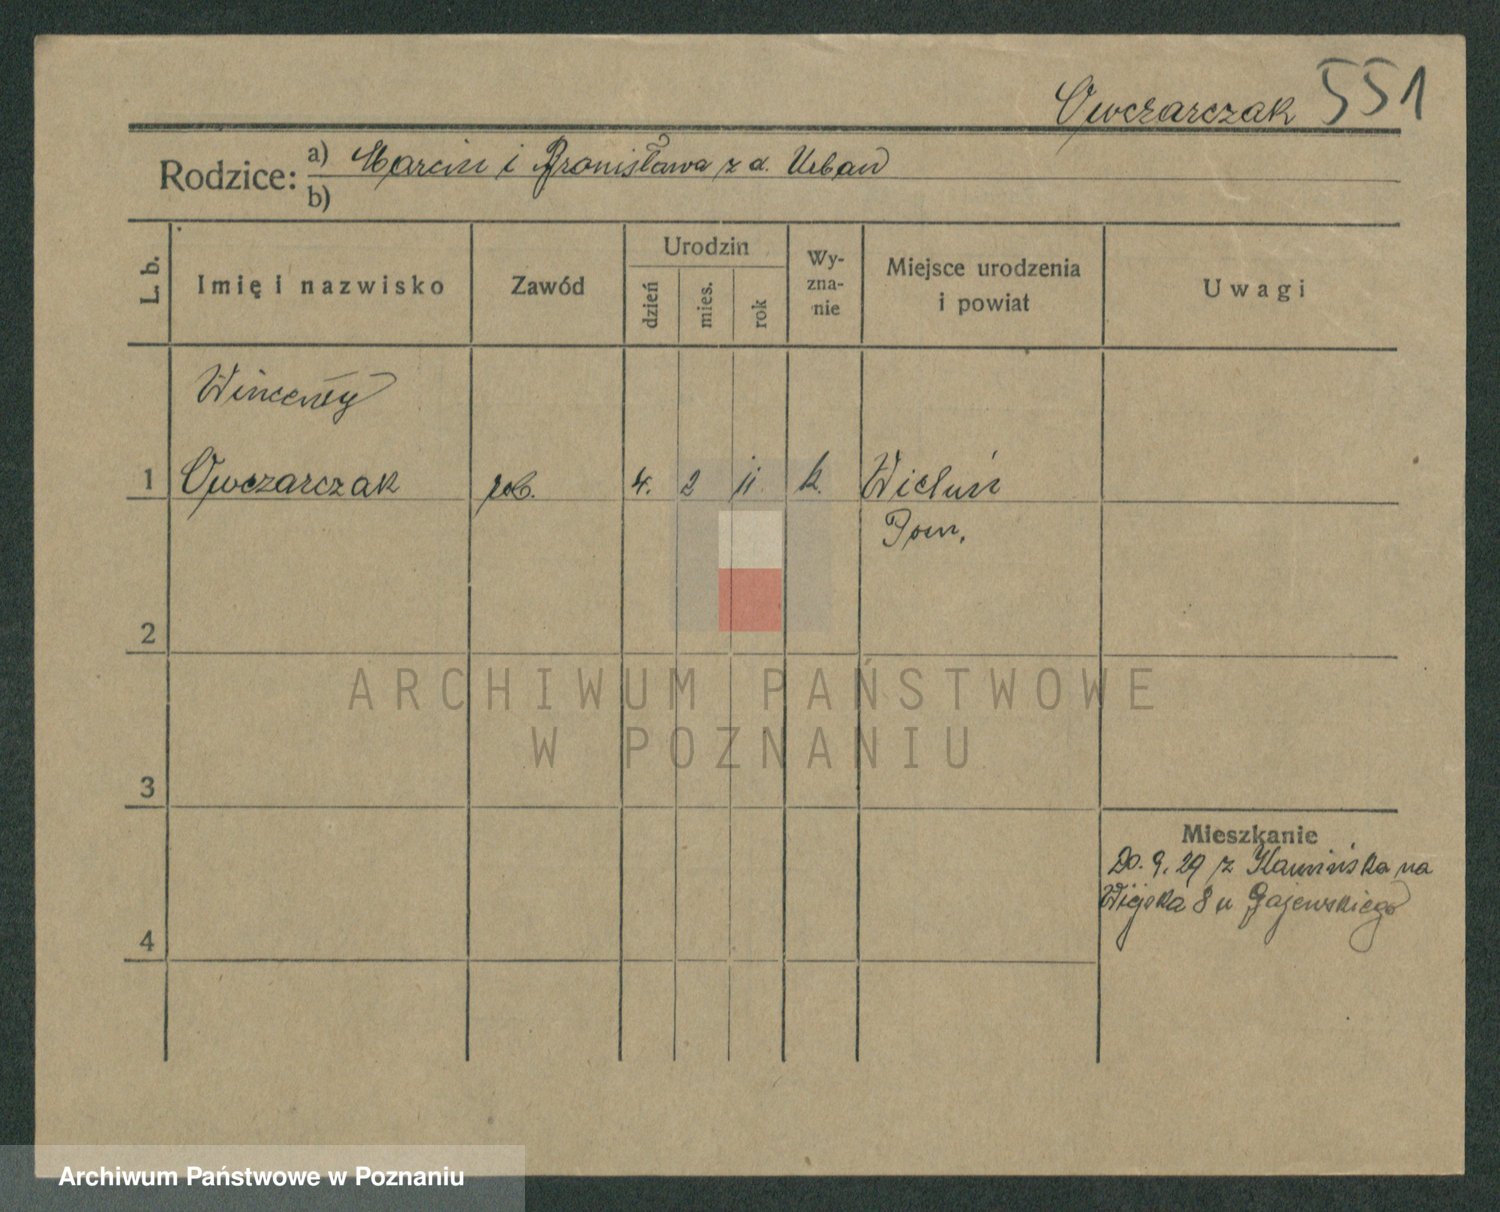 Owczarczak 551
Rodzice: a) Marcin i Bronisława z d. Urban
b)
L. b.
Imię i nazwisko
Zawód
Urodzin
dzień
mies.
rok
Wy-
zna-
nie
Miejsce urodzenia
i powiat
Uwagi
Wincenty
1 Owczarczak rob. 4. 2 11 k. Wieluń
Pow.
2
ARCHIWUM PAŃSTWOWE
W POZNANIU
3
Mieszkanie
20. 9. 29 z Kamińska na
Wiejska 8 u Gajewskiego
4
Archiwum Państwowe w Poznaniu